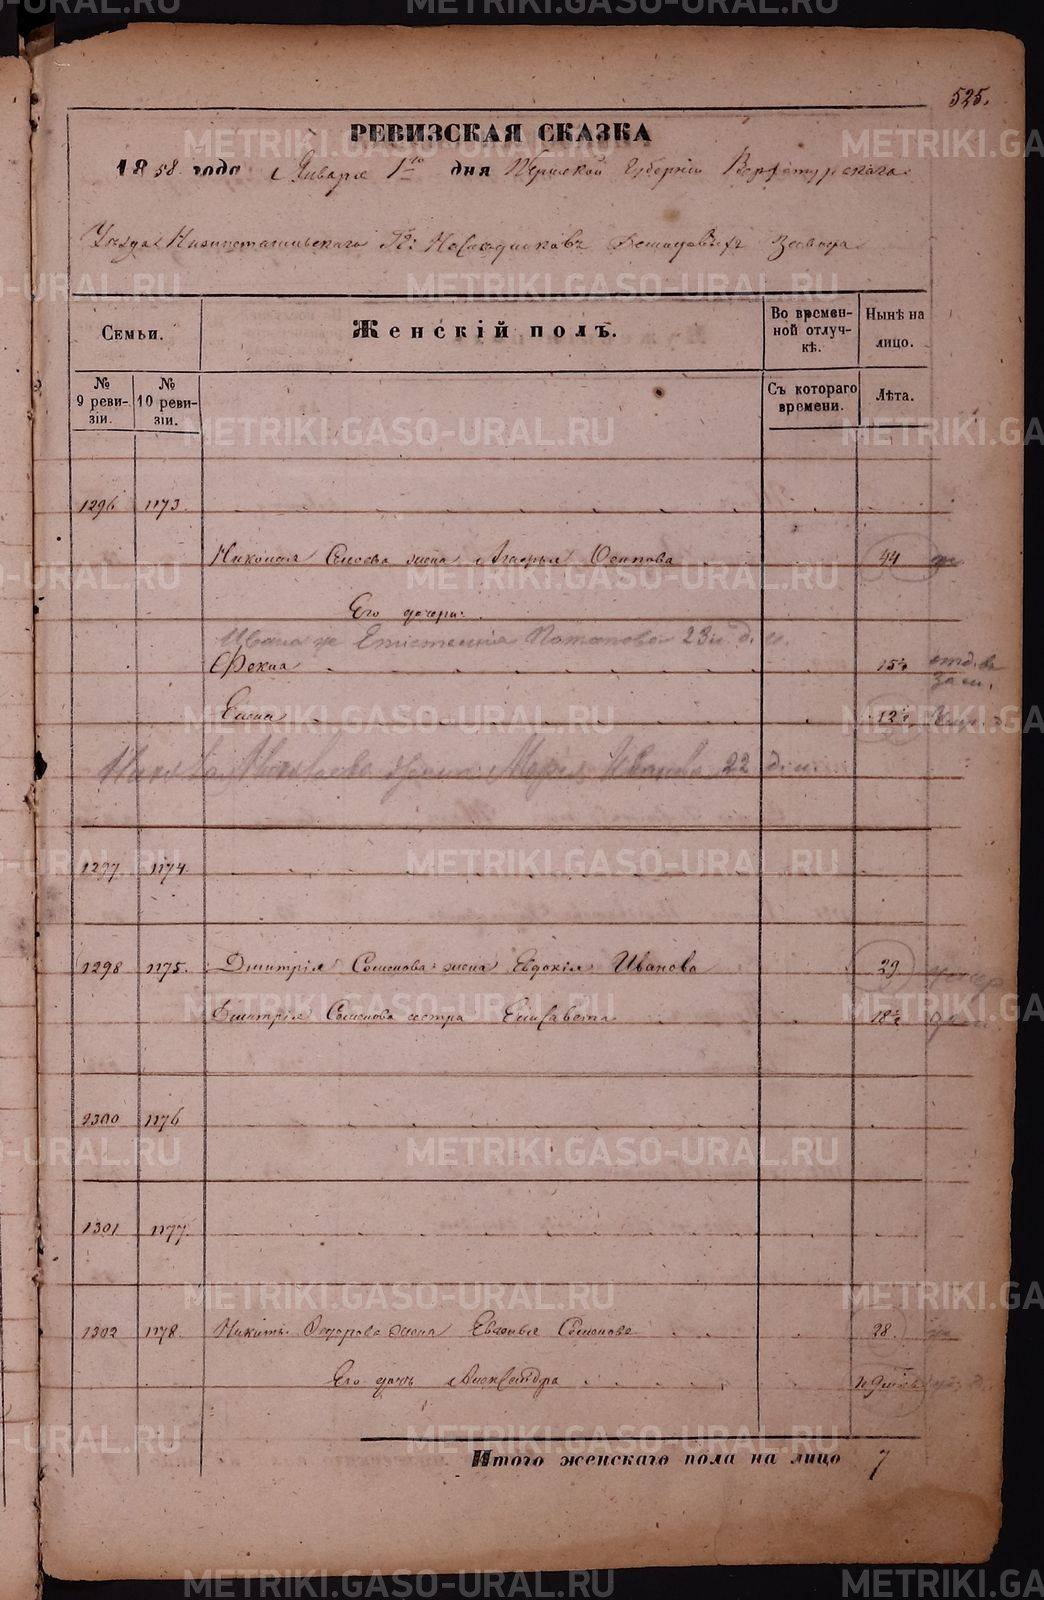 525.
РЕВИЗСКАЯ СКАЗКА
1858 года Января 1го дня Пермской Губернии Верхотурскаго
Уезда Нижнетагильскаго Гг: Наследников Демидовых завода
Семьи.
Женскій полъ.
Во времен-
ной отлуч-
кѣ.
Нынѣ на
лицо.
№
9 реви-
зіи.
№
10 реви-
зіи.
Съ котораго
времени.
Лѣта.
1296 1173.
Николая Семенова жена Агафья Осипова 44
Его дочери:
Ивана ж Потапова 23 и. д. и.
Фекла 15½ отд. в
зам.
Елена 12½
Мария Иванова 22 д. и.
1297. 1174.
1298 1175. Дмитрія Семенова жена Евдокія Иванова 29.
Дмитрія Семенова сестра Елисавета 18½
1300 1176
1301 1177.
1302 1178. Никиты Федорова жена Евгенья Семенова 28.
Его дочь Александра
Итого женскаго пола на лицо 7
METRIKI.GASO-URAL.RU